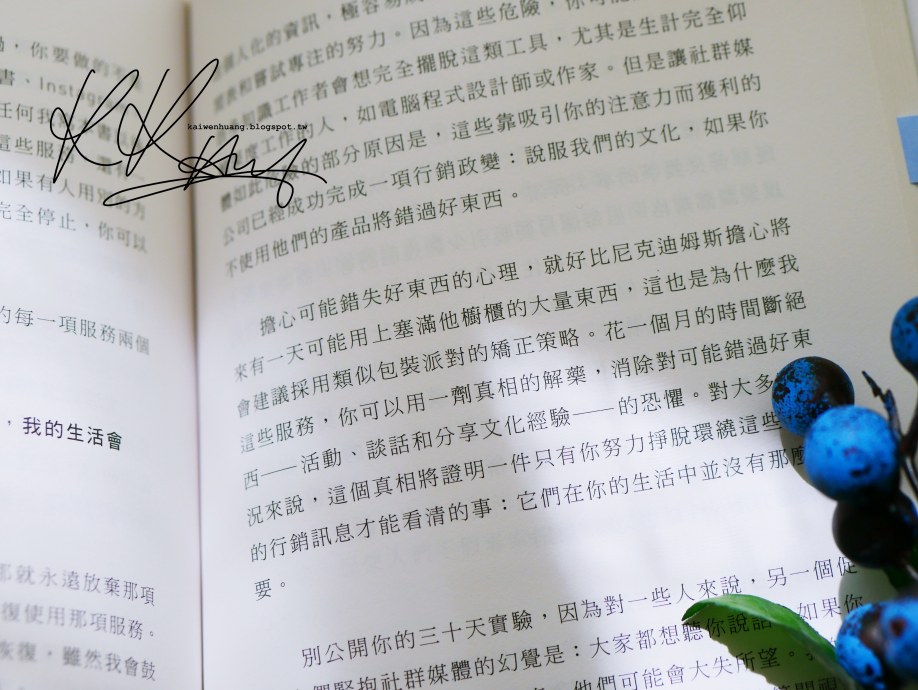 ，你要做的不
書、Instag
任何我
這些服
如果有人用別的方
完全停止，你可以
的每一項服務兩個
，我的生活會
那就永遠放棄那項
復使用那項服務。
恢復，雖然我會鼓
個人化的資訊，極容易成
和嘗試專注的努力。因為這些危險，你可能
知識工作者會想完全擺脫這類工具，尤其是生計完全仰
度工作的人，如電腦程式設計師或作家。但是讓社群媒
體如此 的部分原因是，這些靠吸引你的注意力而獲利的
公司已經成功完成一項行銷政變：說服我們的文化，如果你
不使用他們的產品將錯過好東西。
擔心可能錯失好東西的心理，就好比尼克迪姆斯擔心將
來有一天可能用上塞滿他櫥櫃的大量東西，這也是為什麼我
會建議採用類似包裝派對的矯正策略。花一個月的時間斷絕
這些服務，你可以用一劑真相的解藥，消除對可能錯過好東
西——活動、談話和分享文化經驗——的恐懼。對大多
況來說，這個真相將證明一件只有你努力掙脫環繞這些
的行銷訊息才能看清的事：它們在你的生活中並沒有那麼
要。
別公開你的三十天實驗，因為對一些人來說，另一個促
緊抱社群媒體的幻覺是：大家都想聽你說話，如果你
他們可能會大失所望。
kaiwenhuang.blogspot.tw